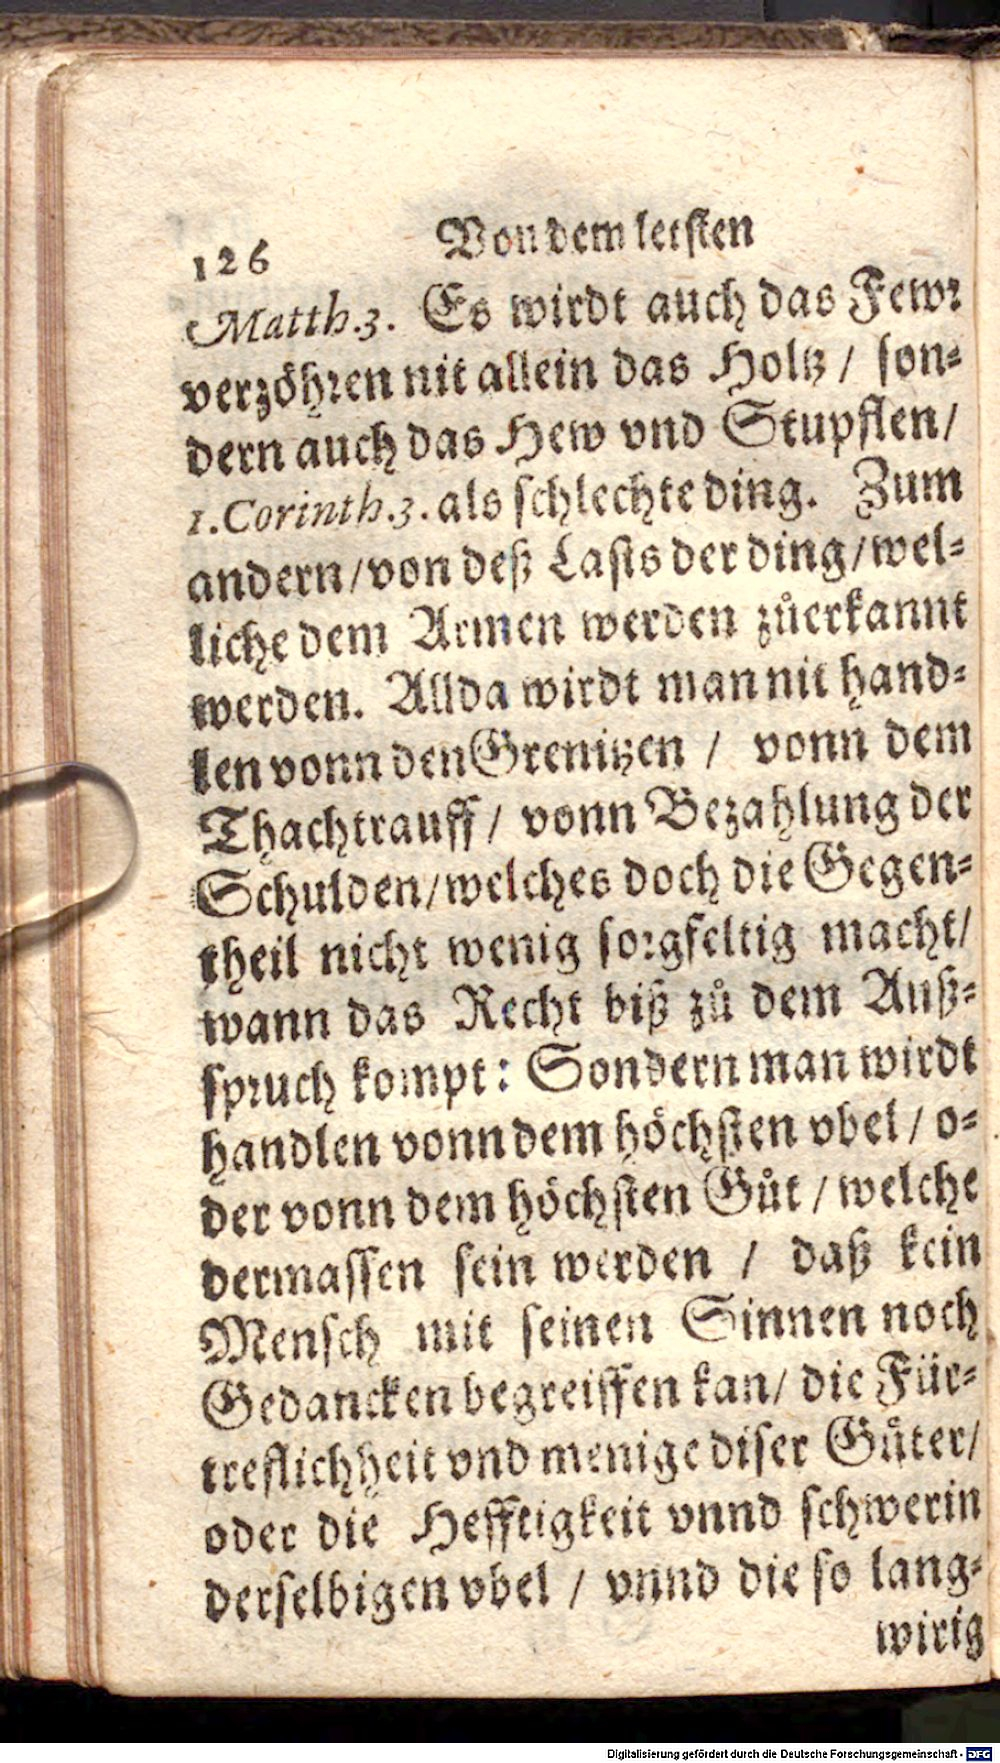 126 Von dem letsten
Matth.3. Es wirdt auch das Fewr
verzöhren nit allein das Holtz / son-
dern auch das Hew vnd Stupflen/
1.Corinth.3. als schlechte ding. Zum
andern/von deß Lasts der ding/wel-
liche dem Armen werden zůerkannt
werden. Allda wirdt man nit hand-
len vonn den Grenitzen / vonn dem
Thachtrauff/ vonn Bezahlung der
Schulden/welches doch die Gegen-
theil nicht wenig sorgfeltig macht/
wann das Recht biß zů dem Auß-
spruch kompt: Sondern man wirdt
handlen vonn dem höchsten vbel / o-
der vonn dem höchsten Gůt / welche
dermassen sein werden / daß kein
Mensch mit seinen Sinnen noch
Gedancken begreiffen kan/ die Für-
treflichheit vnd menige diser Gůter/
oder die Hefftigkeit vnnd schwerin
derselbigen vbel / vnnd die so lang-
wirig
Digitalisierung gefördert durch die Deutsche Forschungsgemeinschaft - DFG